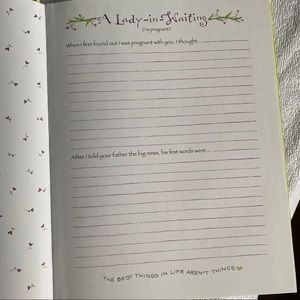 A Lady-in-Waiting
(I'm pregnant!)
When I first found out I was pregnant with you, I thought...
After I told your father the big news, his first words were...
THE BEST THINGS IN LIFE AREN'T THINGS.